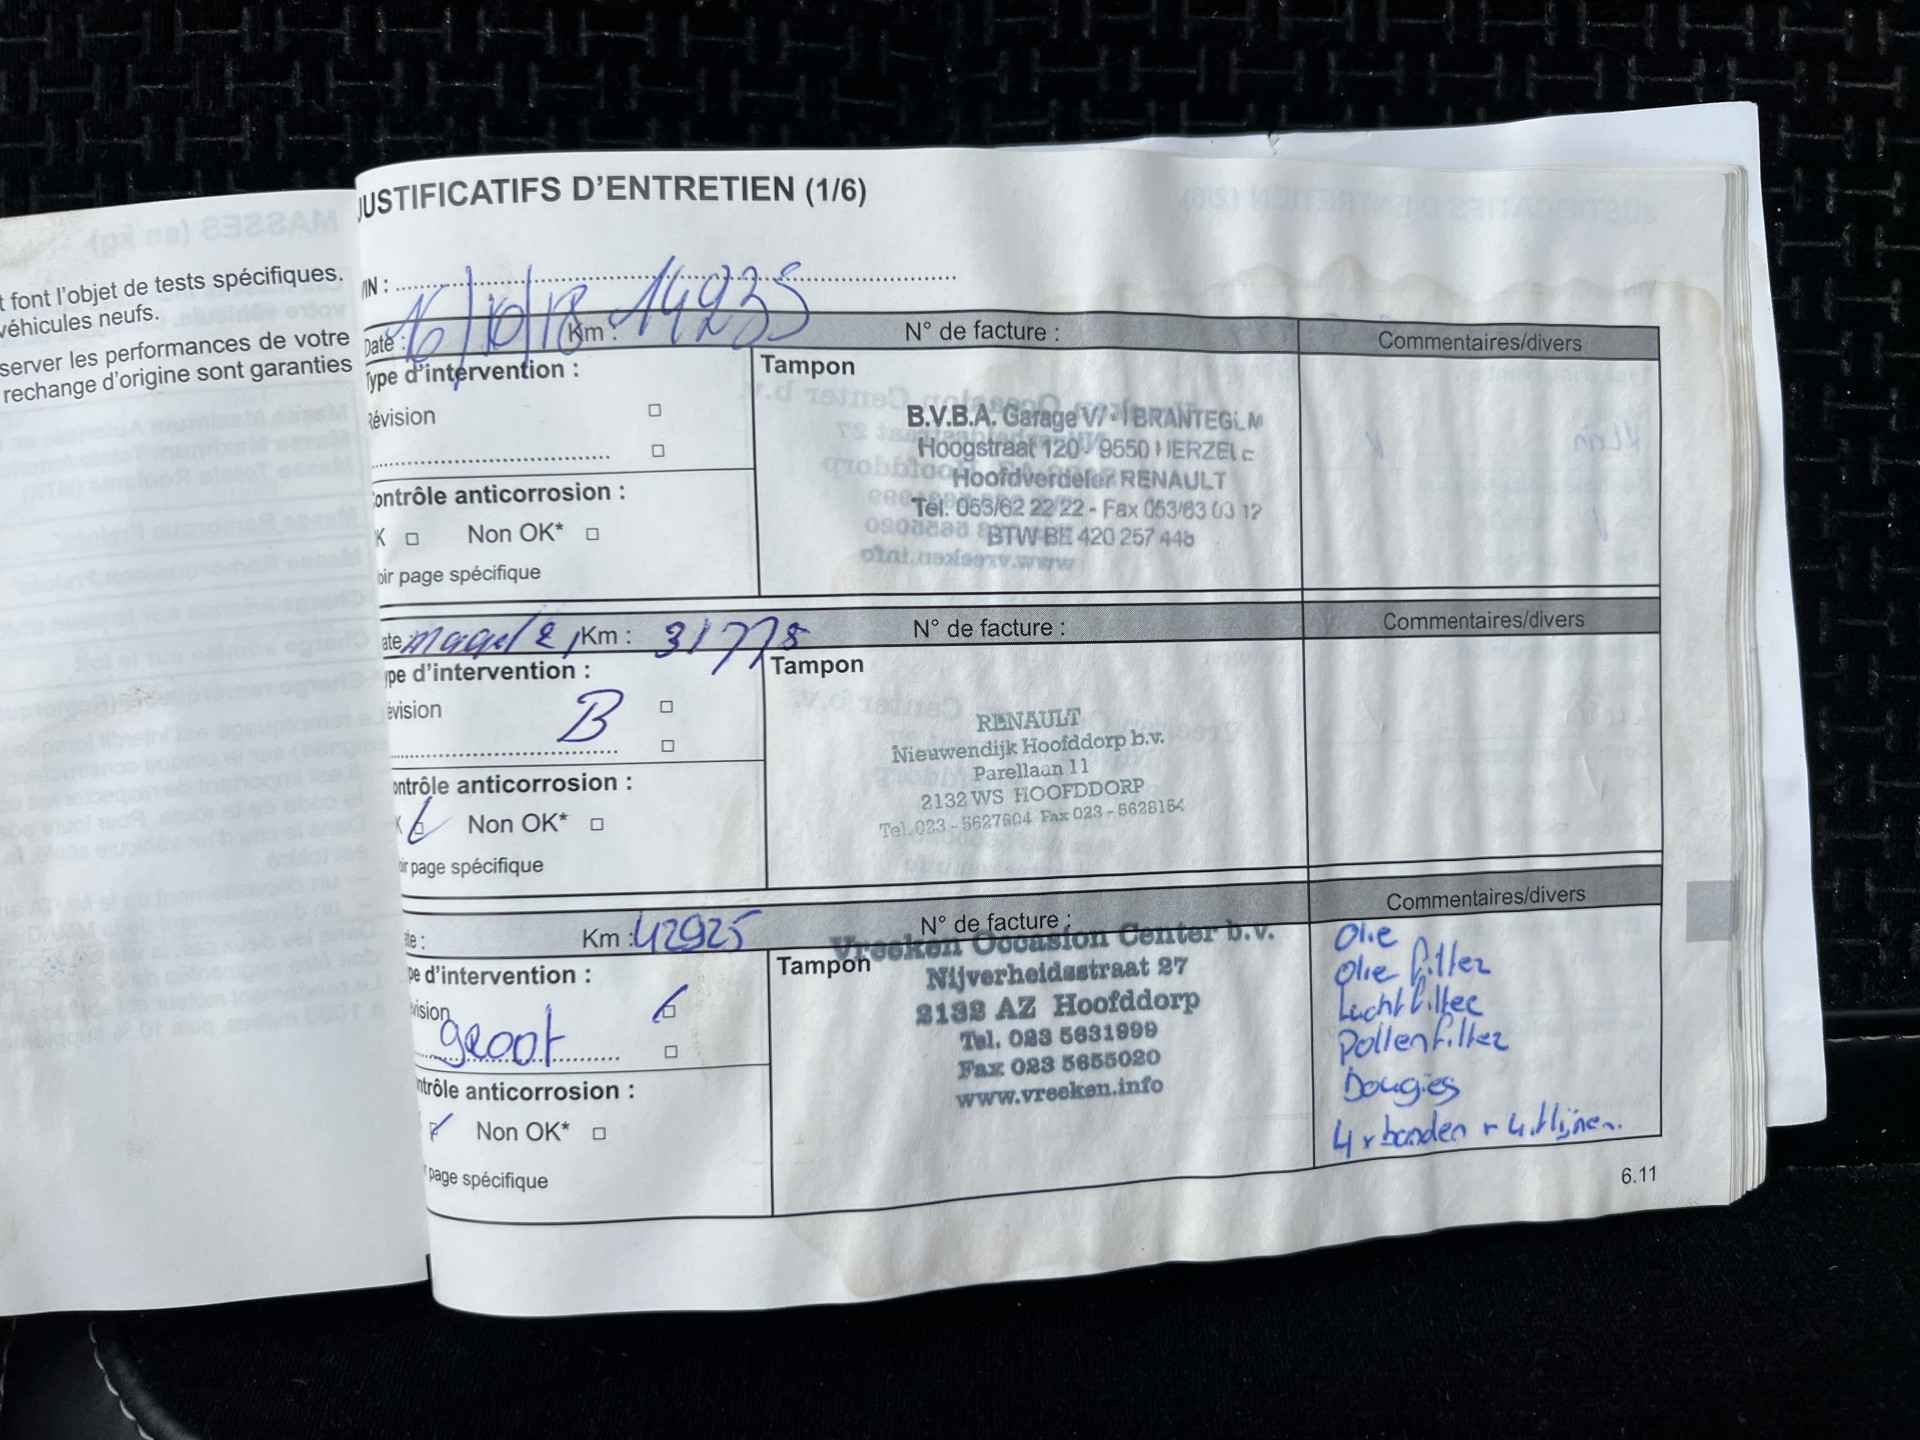 t font l'objet de tests spécifiques.
véhicules neufs.
server les performances de votre
rechange d'origine sont garanties
MASSES (en kg)
JUSTIFICATIFS D'ENTRETIEN (1/6)
VIN :
Date : 16/10/18 Km : 14235 N° de facture : Commentaires/divers
Type d'intervention :
Révision
Contrôle anticorrosion :
K Non OK*
oir page spécifique
Tampon
B.V.B.A. Garage
Hoogstraat 120 - 9550 HERZELE
Hoofdverdeler RENAULT
Tél. 053/62 22 22 - Fax 053/63 03 12
BTW BE 420 257 445
ate Km : 31775 N° de facture : Commentaires/divers
ype d'intervention :
évision B
ontrôle anticorrosion :
K Non OK*
ir page spécifique
Tampon
RENAULT
Nieuwendijk Hoofddorp b.v.
Parellaan 11
2132 WS HOOFDDORP
Tel. 023 - 5627604 Fax 023 - 5628154
te : Km : 42925 N° de facture : Commentaires/divers
pe d'intervention :
vision
groot
ntrôle anticorrosion :
Non OK*
page spécifique
Tampon
Vreeken Occasion Center b.v.
Nijverheidsstraat 27
2132 AZ Hoofddorp
Tel. 023 5631999
Fax 023 5655020
www.vreeken.info
Olie
Olie filter
Luchtfilter
Pollenfilter
Bougies
4 x banden + uitlijnen.
6.11